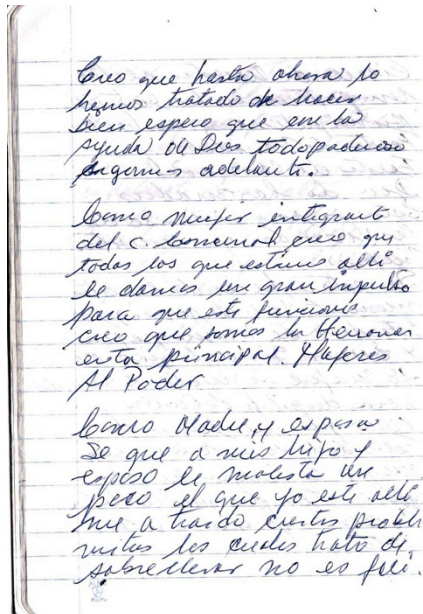 Creo que hasta ahora lo
hemos tratado de hacer
bien espero que con la
ayuda de Dios todopoderoso
sigamos adelante.
Como mujer integrante
del c. comunal creo que
todas las que estamos allí
le damos un gran impulso
para que este funcione
creo que somos la Herrami
enta principal. Mujeres
Al Poder
Como Madre, y esposa
Se que a mis hijo y
esposo le molesta un
poco el que yo este alli
me a traido ciertos probl
mitas los cuales trato de
sobrellevar no es fáci.